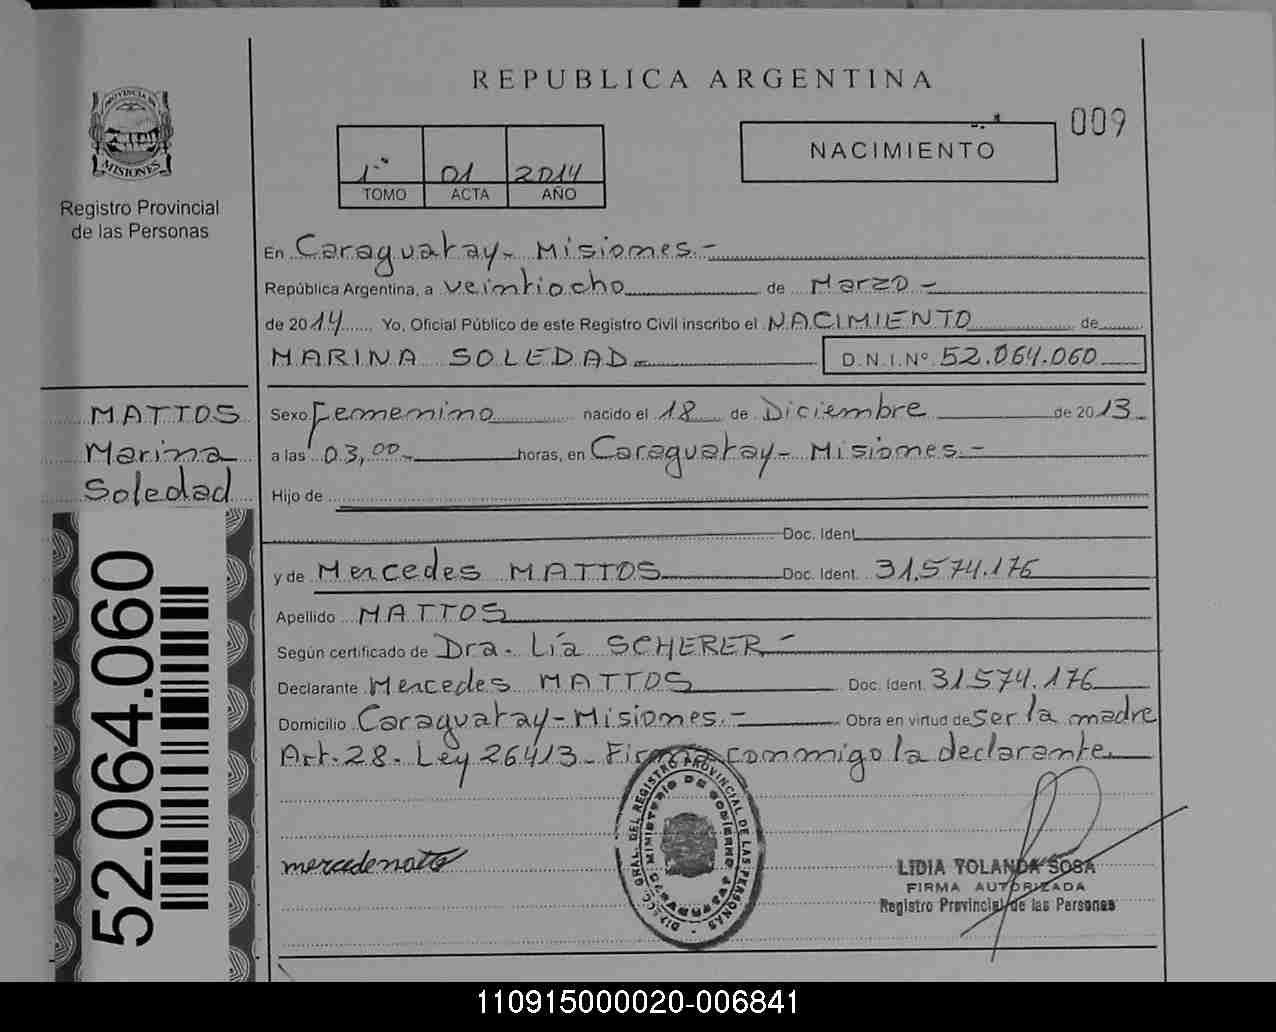 REPUBLICA ARGENTINA
009
PROVINCIA DE
MISIONES
Registro Provincial
de las Personas
1º 01 2014
TOMO ACTA AÑO
NACIMIENTO
En Caraguatay- Misiones.-
República Argentina, a veintiocho de Marzo-
de 2014 Yo, Oficial Público de este Registro Civil inscribo el NACIMIENTO de
MARINA SOLEDAD.- D.N.I.Nº 52.064.060
MATTOS
Marina
Soledad
52.064.060
Sexo Femenino nacido el 18 de Diciembre de 2013
a las 03,00- horas, en Caraguatay- Misiones.-
Hijo de
Doc. Ident.
y de Mercedes MATTOS Doc. Ident. 31.574.176
Apellido MATTOS
Según certificado de Dra. Lía SCHERER.-
Declarante Mercedes MATTOS Doc. Ident. 31.574.176
Domicilio Caraguatay-Misiones.- Obra en virtud de ser la madre
Art. 28. Ley 26413- Firma conmigo la declarante.
DIRECC. GRAL. DEL REGISTRO PROVINCIAL DE LAS PERSONAS
MINISTERIO DE GOBIERNO
CARAGUATAY
LIDIA YOLANDA SOSA
FIRMA AUTORIZADA
Registro Provincial de las Personas
110915000020-006841